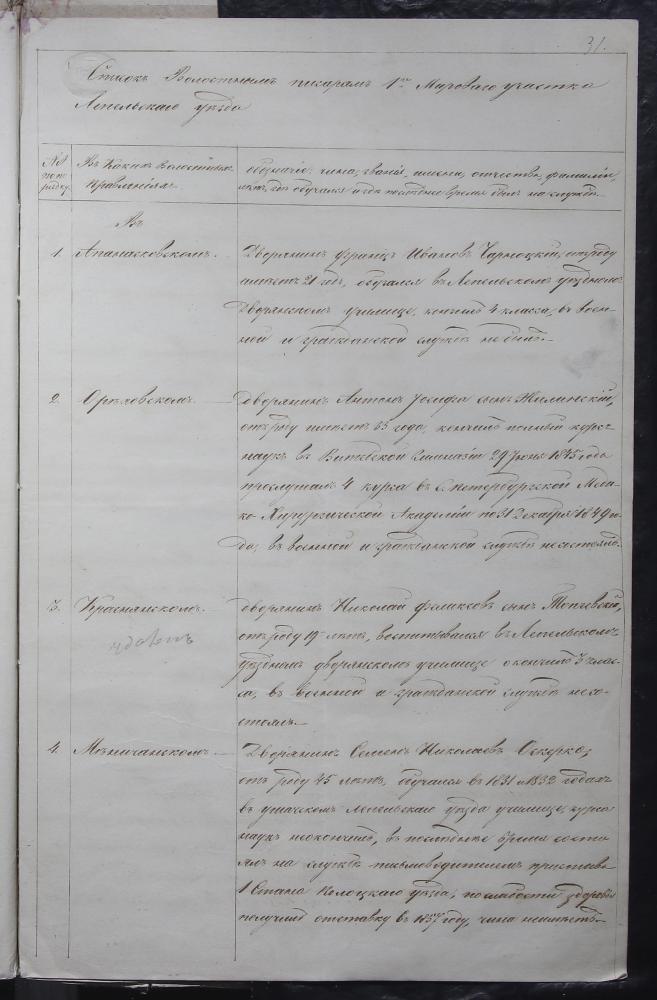 31.
Списокъ Волостнымъ писарамъ 1го Мироваго участка
Лепельскаго уѣзда
№№ по порядку
Въ какихъ Волостныхъ Правленіяхъ.
чина, званія, имени, отчества, фамиліи,
лѣтъ, гдѣ обучался и гдѣ послѣднее время былъ на службѣ.
Въ
1. Апанасковскомъ.
Дворянинъ Францъ Ивановъ Чарноцкій, отъ роду
имѣетъ 21 годъ, обучался въ Лепельскомъ уѣздномъ
Дворянскомъ училище, кончилъ 4 класса, въ воен-
ной и гражданской службѣ не былъ.
2. Орѣховскомъ
Дворянинъ Антонъ Іосифа сынъ Жилинскій,
отъ роду имѣетъ 35 года, кончилъ полный курсъ
наукъ въ Витебской Гимназіи 29 Іюня 1845 года
прослушалъ 4 курса въ С. Петербургской Меди-
ко Хирургической Академіи по 31 Декабря 1849 го-
да, въ военной и гражданской службѣ несостоялъ.
3. Краснянскомъ.
Дворянинъ Николай Феликсовъ сынъ Топчевскій,
отъ роду 19 лѣтъ, воспитывался въ Лепельскомъ
уѣздномъ дворянскомъ училище окончилъ 3 клас-
са, въ военной и гражданской службѣ несо-
стоялъ.
4. Мѣничанскомъ
Дворянинъ Семенъ Николаевъ Оскерко,
отъ роду 45 лѣтъ, обучался въ 1831 и 1832 годахъ
въ ушачскомъ Лепельскаго уѣзда училище, курса
наукъ неокончилъ, въ послѣднее время состо-
ялъ на службѣ письмоводителемъ пристава
1 Стана Полоцкаго уѣзда, по слабости здоровья
получилъ отставку въ 1857 году, чина неимѣетъ.